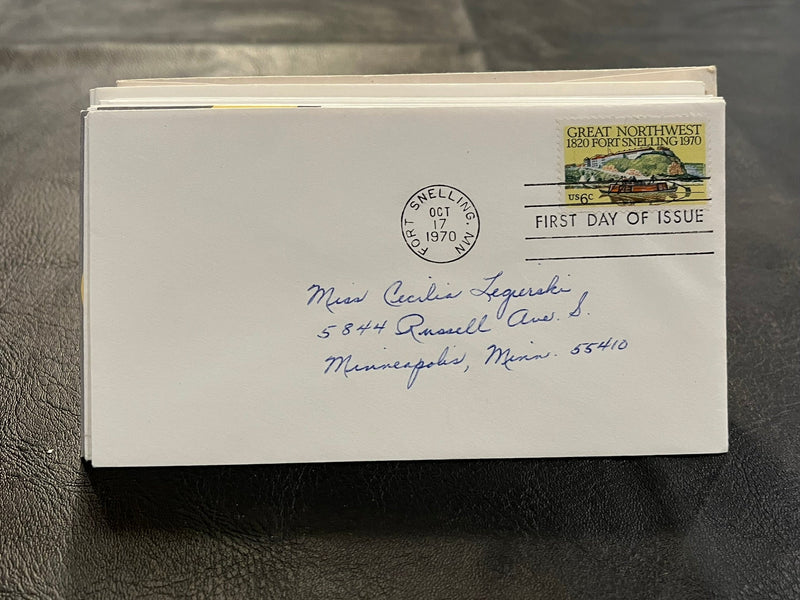 GREAT NORTHWEST
1820 FORT SNELLING 1970
US 6c
FORT SNELLING, MN
OCT
17
1970
FIRST DAY OF ISSUE
Miss Cecilia Legierski
5844 Russell Ave. S.
Minneapolis, Minn. 55410